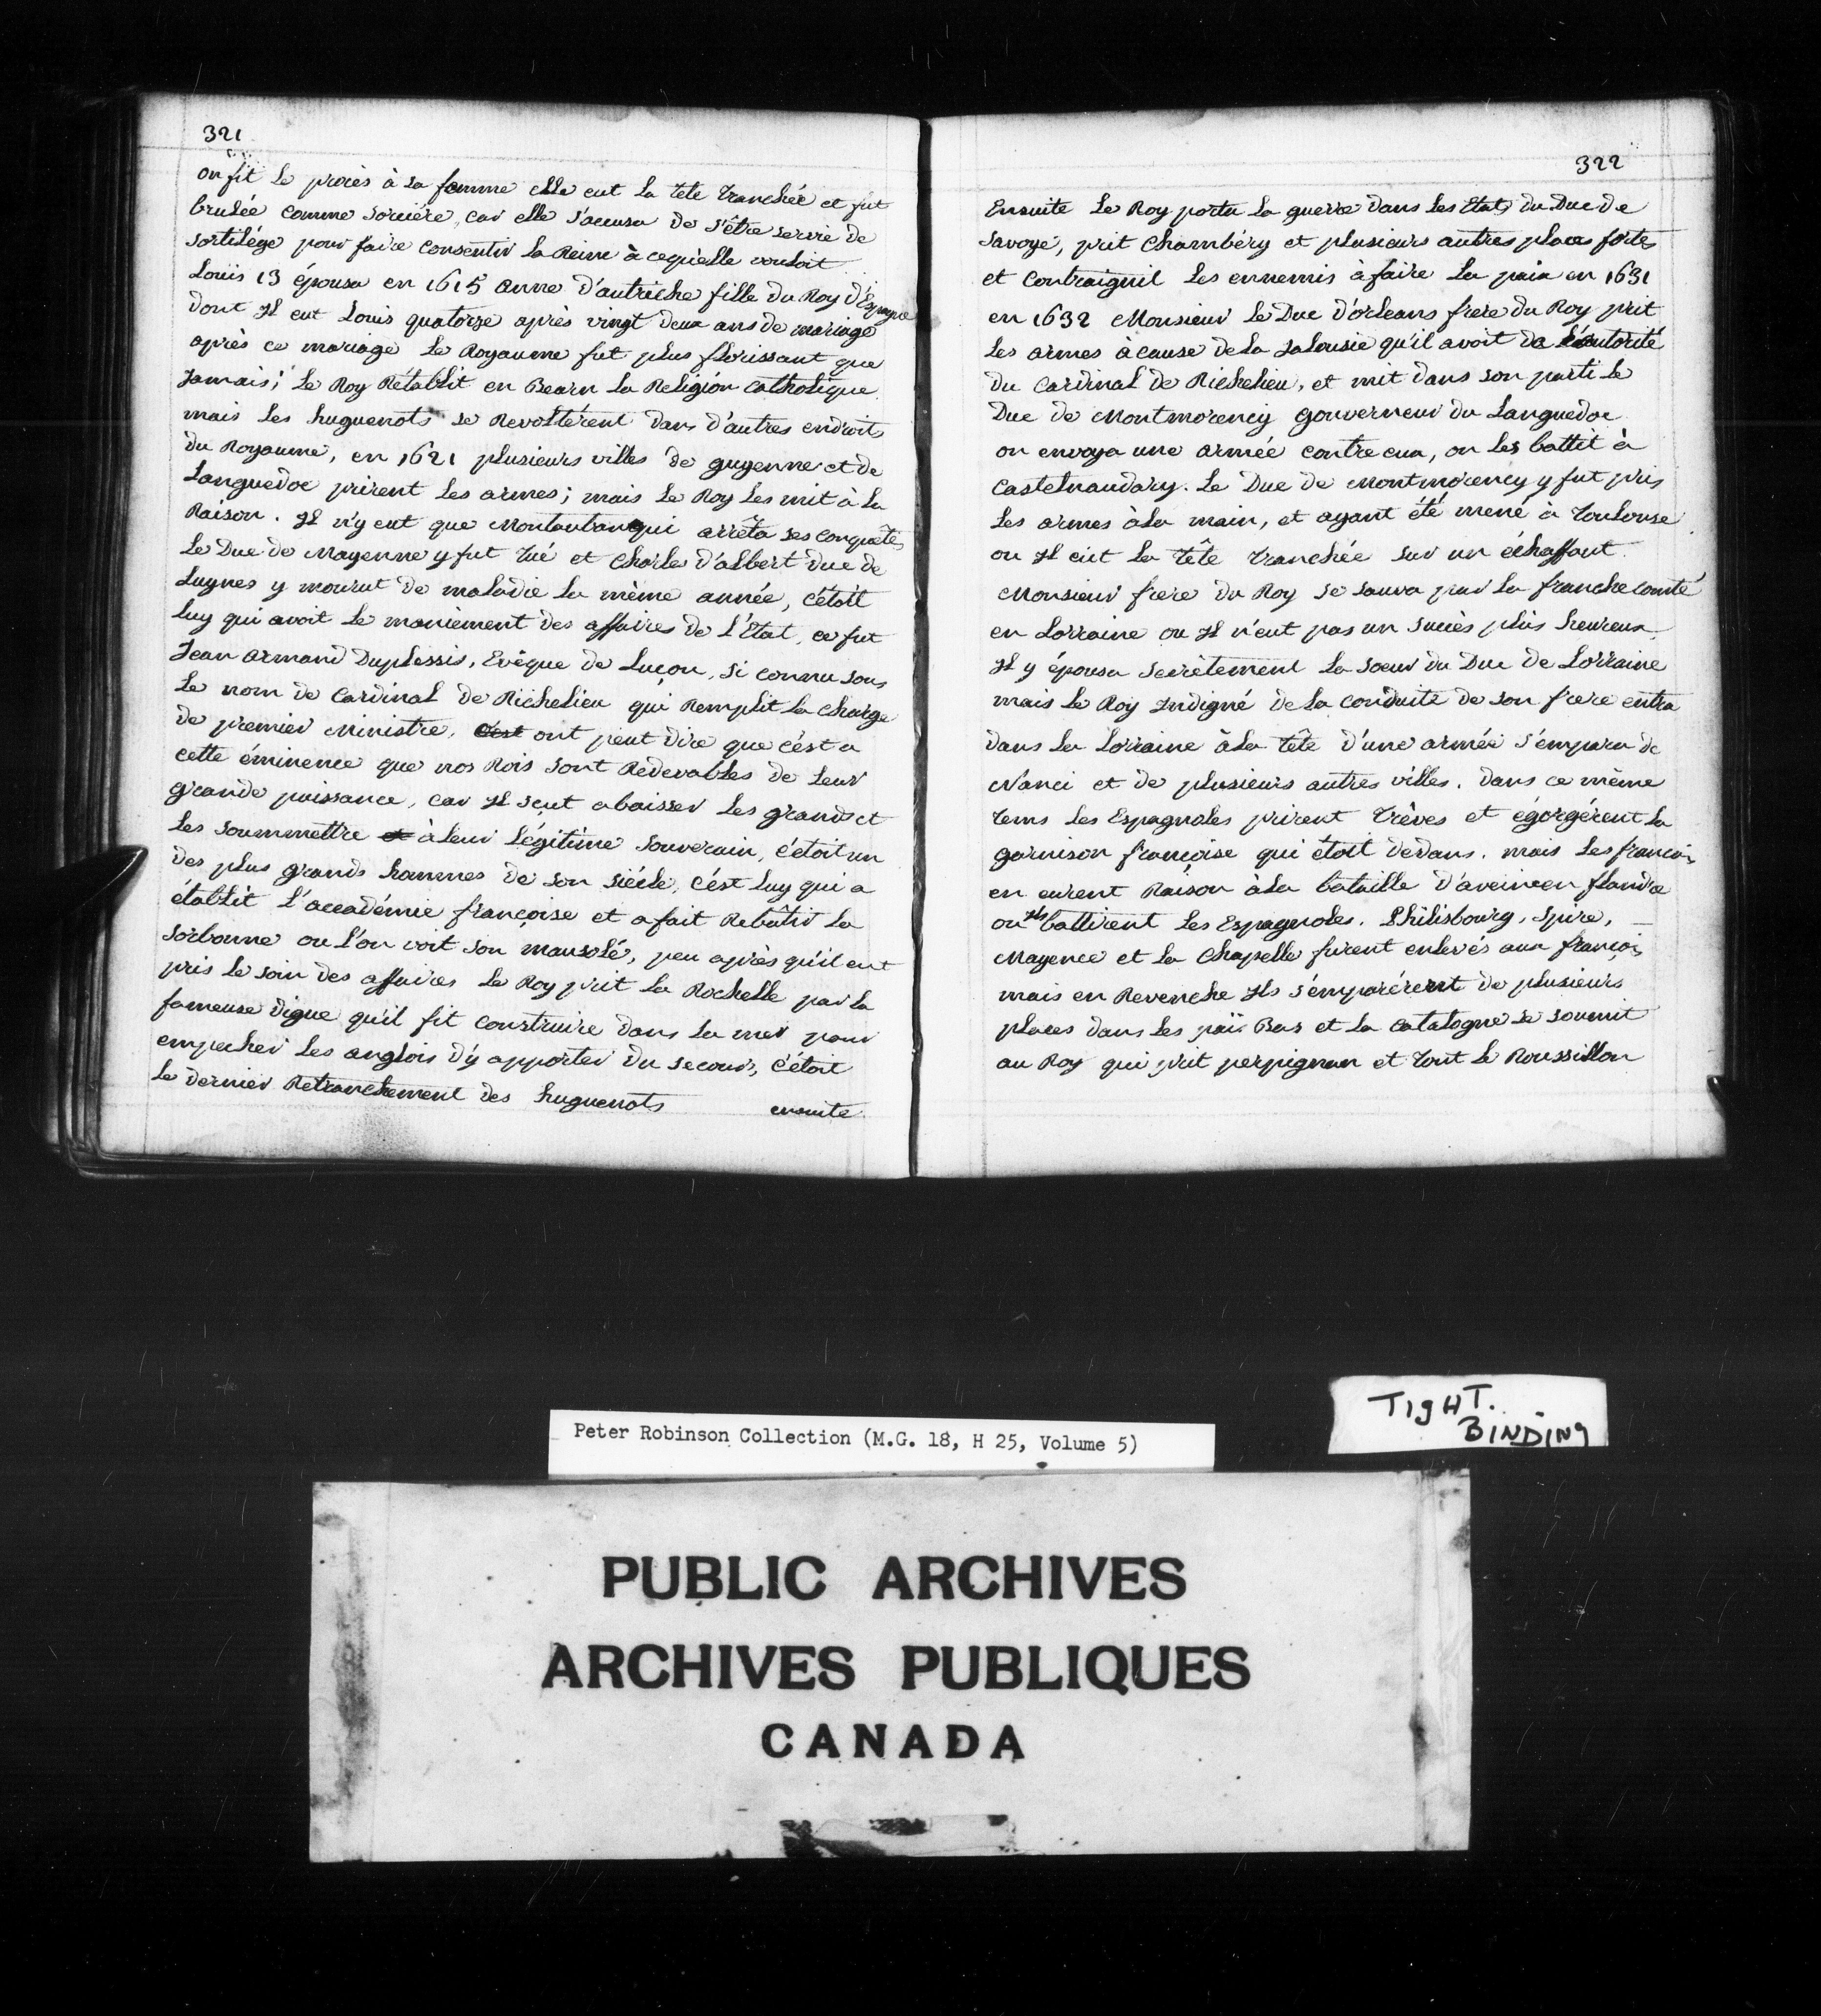 321
on fit le procès à sa femme elle eut la tete tranchée et fut
brulée comme sorciére, car elle s'accusa de s'être servie de
sortilége pour faire consentir la Reine à cequ'elle vouloit
Louis 13 épousa en 1615 anne d'autriche fille du Roy d'Espagne
dont Il eut Louis quatorze après vingt deux ans de mariage
après ce mariage le Royaume fut plus florissant que
Jamais; Le Roy Rétablit en Bearn la Religion catholique
mais les huguenots se Revoltérent dans d'autres endroits
du Royaume, en 1621 plusieurs villes de guyenne et de
Languedoc prirent les armes; mais le Roy les mit à la
Raison. Il n'y eut que Montauban qui arrêta ses conquêtes
Le Duc de Mayenne y fut tué et Charles d'albert Duc de
Luynes y mourut de maladie la même année, c'étoit
luy qui avoit le maniement des affaires de L'Etat, ce fut
Jean armand Duplessis, Evêque de Luçon, si connu sous
Le nom de Cardinal de Richelieu qui Remplit la charge
de premier Ministre, C'est ont peut dire que c'est a
cette éminence que nos Rois sont Redevables de leur
grande puissance, car Il sçut abaisser les grands et
les soummettre et à leur légitime souverain, c'étoit un
des plus grands hommes de son siécle, c'est luy qui a
établit l'accadémie françoise et a fait Rebâtir la
Sorbonne ou l'on voit son mausolé, peu après qu'il eut
pris le soin des affaires le Roy prit la Rochelle par la
fameuse digue qu'il fit construire dans la mer pour
empecher les anglois d'y apporter du secours, c'étoit
le dernier Retranchement des huguenots
ensuite
322
Ensuite le Roy porta la guerre dans les Etats du Duc de
Savoye, prit Chambéry et plusieurs autres places fortes
et contraignit les ennemis à faire la paix en 1631
en 1632 Monsieur le Duc d'orleans frere du Roy prit
les armes à cause de la Jalousie qu'il avoit de l'autorité
du Cardinal de Richelieu, et mit dans son parti le
Duc de Montmorency gouverneur du Languedoc
on envoya une armée contre eux, on les battit à
Castelnaudary. Le Duc de Montmorency y fut pris
les armes à la main, et ayant été mené à Toulouse
ou Il eut la tête tranchée sur un échaffaut
Monsieur frere du Roy se sauva par la franche comté
en Lorraine ou Il n'eut pas un succès plus heureux
Il y épousa secrètement la soeur du Duc de Lorraine
mais le Roy Indigné de la conduite de son frere entra
dans la Lorraine à la tête d'une armée s'empara de
Nanci et de plusieurs autres villes. dans ce même
tems les Espagnoles prirent Trèves et égorgérent la
garnison françoise qui étoit dedans. mais les françois
en eurent Raison à la bataille d'avein en flandre
ou Ils battirent les Espagnoles. Philisbourg, Spire,
Mayence et la Chapelle furent enlevés aux françois
mais en Revenche Ils s'emparérent de plusieurs
places dans les païs Bas et la catalogne se soumit
au Roy qui prit perpignan et tout le Roussillon
TIgHT.
BINDINg
Peter Robinson Collection (M.G. 18, H 25, Volume 5)
PUBLIC ARCHIVES
ARCHIVES PUBLIQUES
CANADA